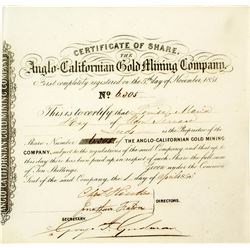 CERTIFICATE OF SHARE,
THE
Anglo-Californian Gold Mining Company.
First completely registered on the 3rd day of November, 1851.
No. 6005
This is to certify that
of
Leeds is the Proprietor of the
Share Number 6005 of THE ANGLO-CALIFORNIAN GOLD MINING
COMPANY, subject to the regulations of the said Company and that up to
this day there has been paid up in respect of such Share the full sum
of Ten Shillings
Given under the Common
Seal of the said company, the 1 day of April 1852
DIRECTORS.
SECRETARY.
ANGLO-CALIFORNIAN GOLD MINING COMPANY